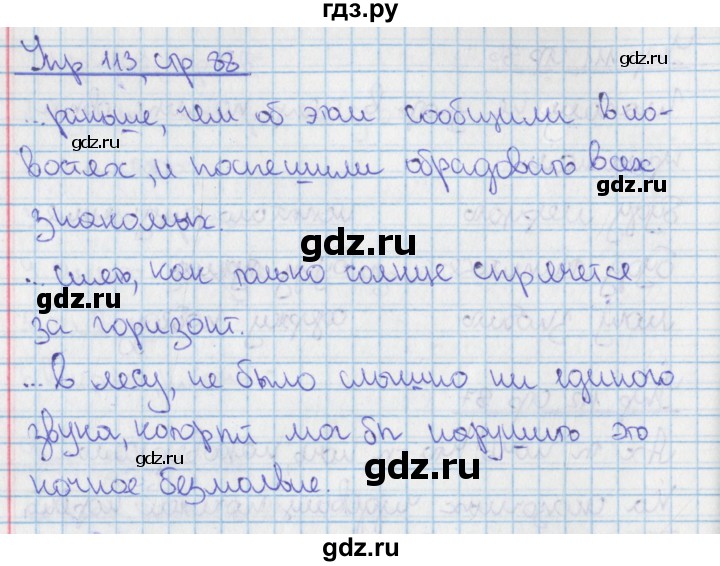 гдз.ру
Упр 113, стр 88
gdz.ru
...раньше, чем об этом сообщили в но-
gdz.ru
востях, и поспешили обрадовать всех
gdz.ru
знакомых.
gdz.ru
...сиять, как только солнце спрячется
gdz.ru
за горизонт.
gdz.ru
...в лесу, не было слышно ни единого
звука, который мог бы нарушить это
gdz.ru
gdz.ru
ночное безмолвие.
gdz.ru